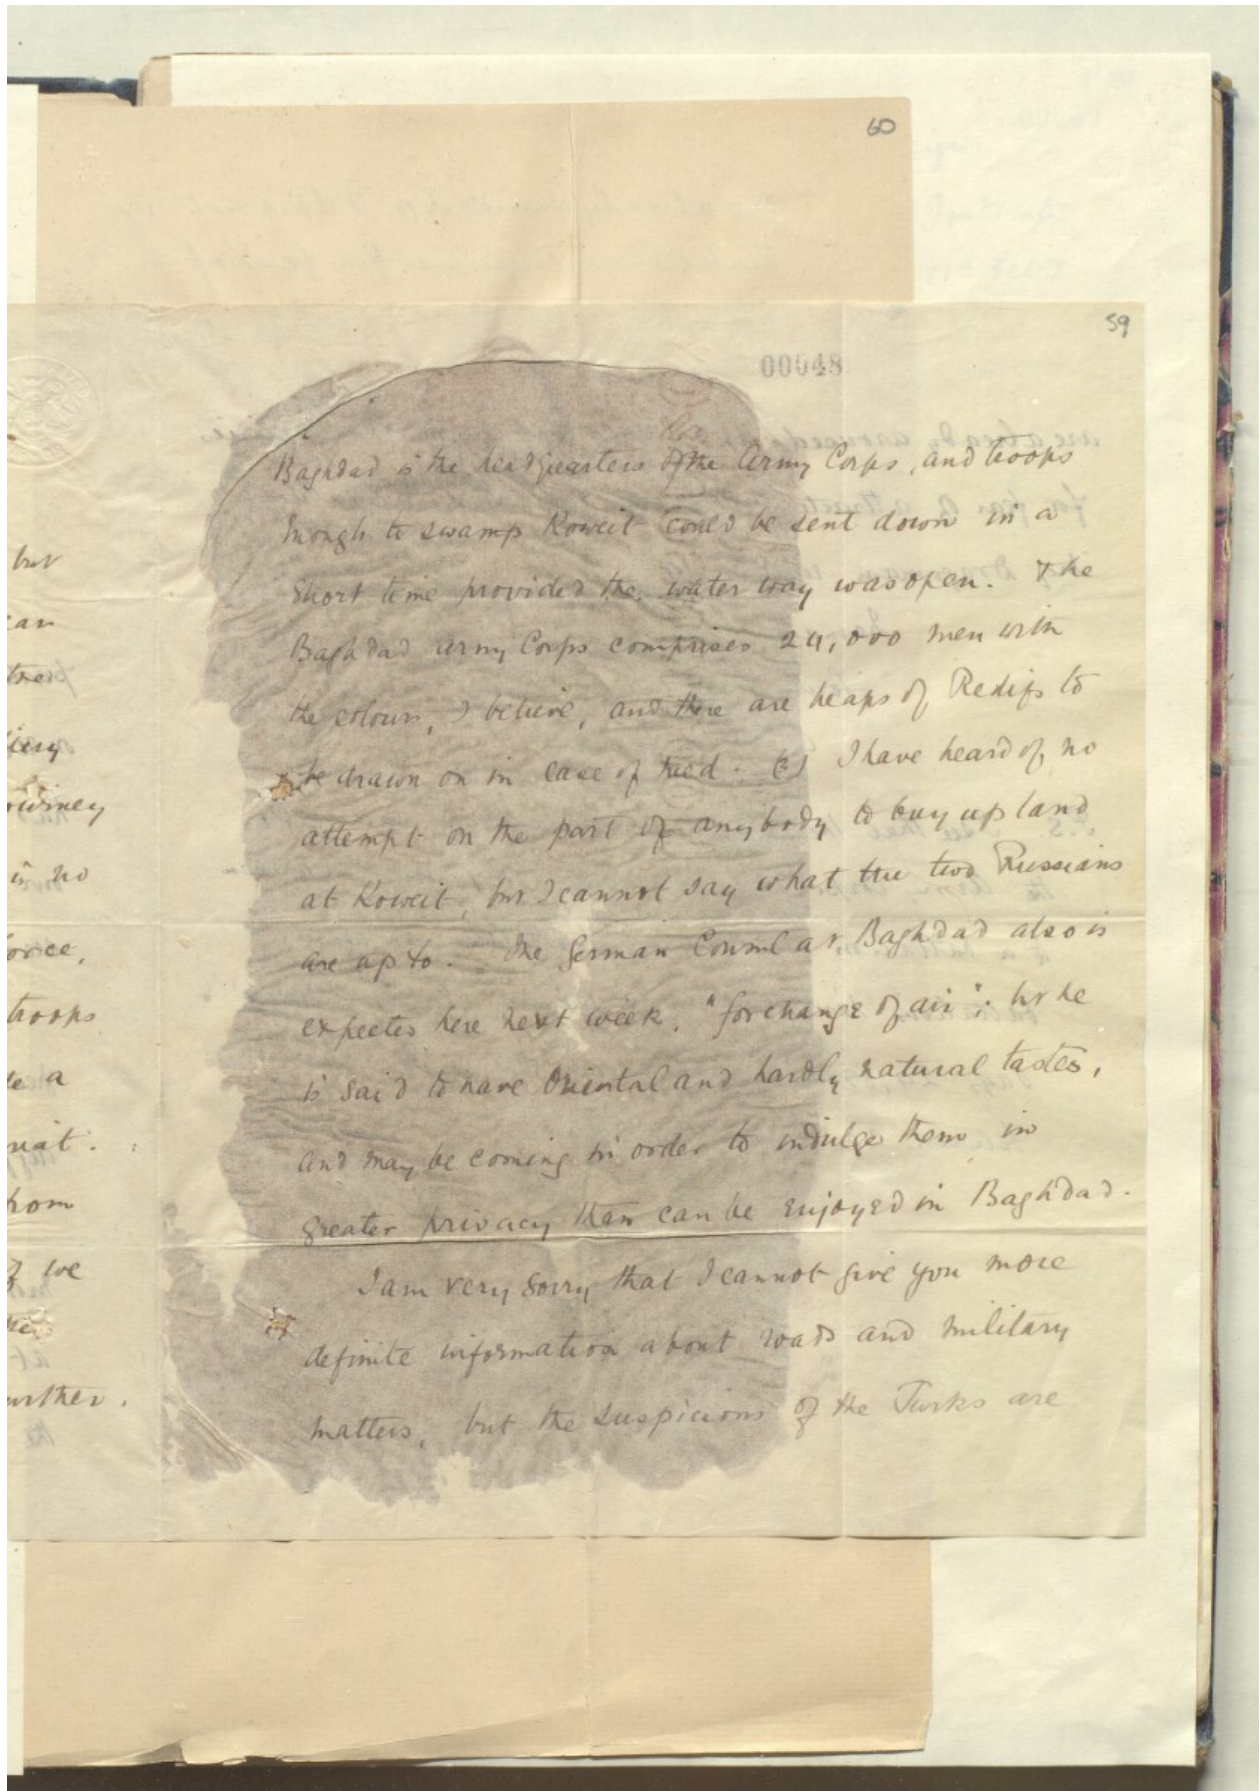 60
59
00048
Baghdad is the headquarters of the Army Corps, and troops
enough to swamp Koweit could be sent down in a
short time provided the water way was open. The
Baghdad Army Corps comprises 24,000 men with
the colours, I believe, and there are heaps of Redifs to
be drawn on in case of need. I have heard of no
attempt on the part of anybody to buy up land
at Koweit, but I cannot say what the two Russians
are up to. The German Consul at Baghdad also is
expected here next week, "for change of air"; but he
is said to have Oriental and hardly natural tastes,
and may be coming in order to indulge them in
greater privacy than can be enjoyed in Baghdad.
I am very sorry that I cannot give you more
definite information about roads and military
matters, but the suspicions of the Turks are
but
is no
troops
a
we